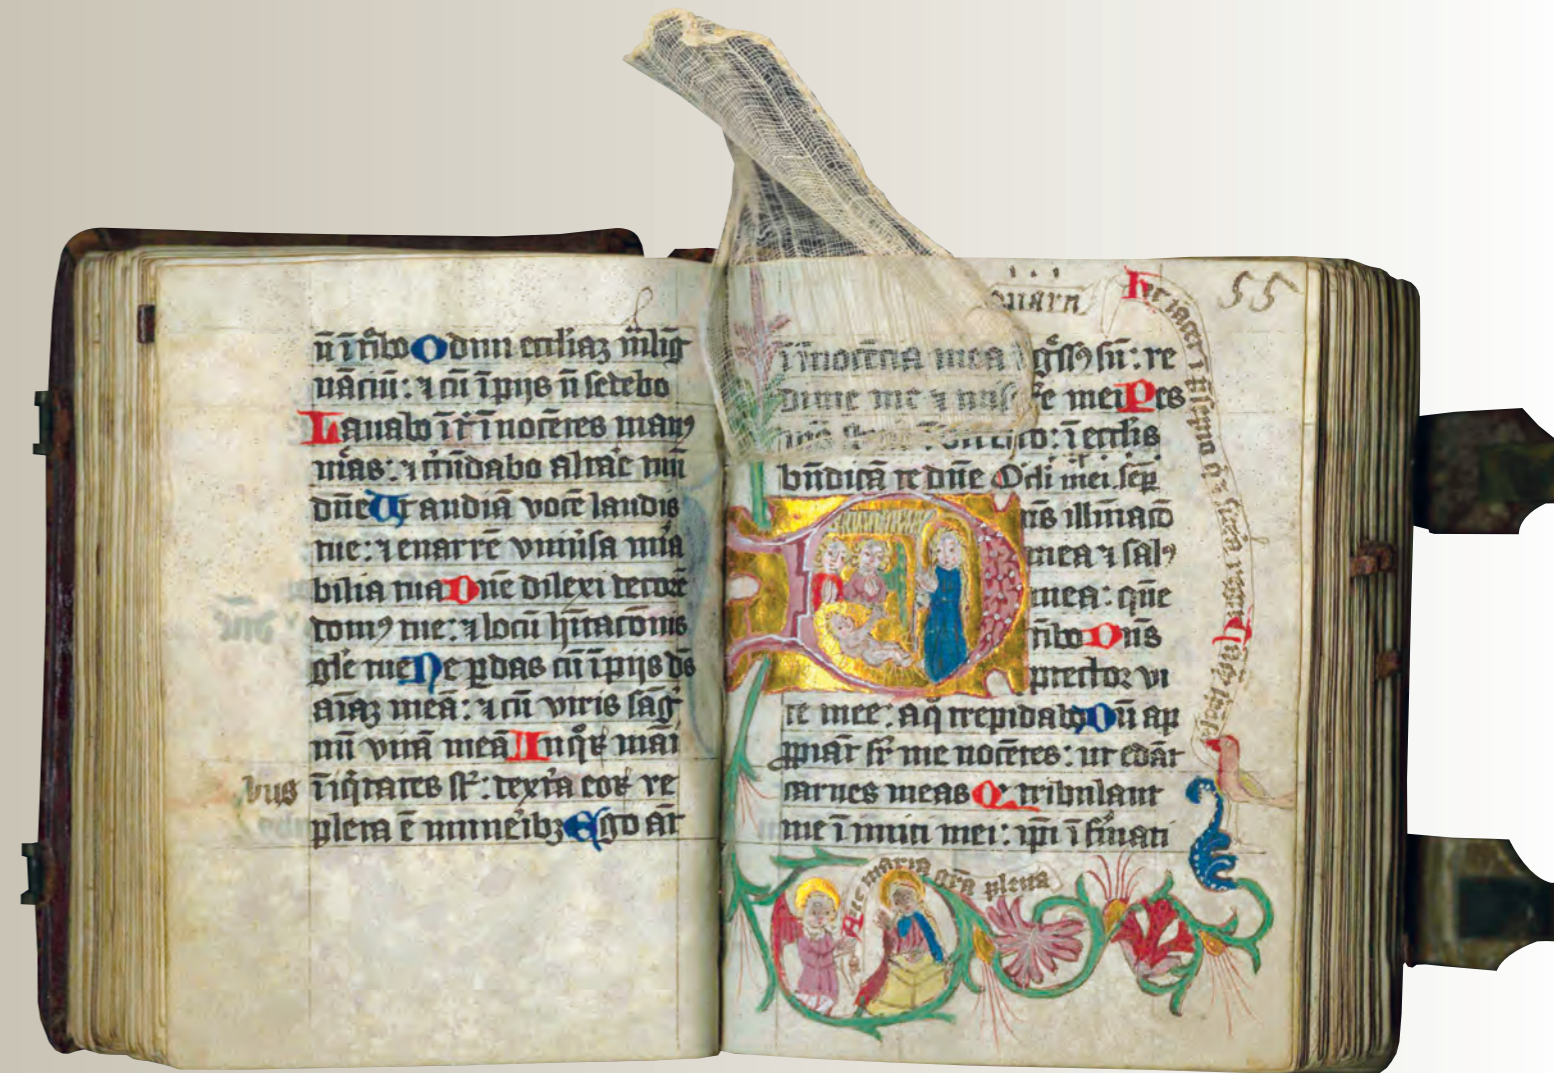 n̄ ītⁱbo Odiui eccliaȝ m̄lig
nāciū: ⁊ cū īpijs n̄ sedebo
Lauabo īt̄ īnocētes manꝰ
mas: ⁊ c̄ūdabo altare tuū
dn̄e Ut audiā vocē laudis
tue: ⁊ enarrē vniūsa mīa
bilia tua Dn̄e dilexi decorē
domꝰ tue: ⁊ locū hītacōnis
gl̄e tue Ne ꝑdas cū īpijs ds̄
aīaȝ meā: ⁊ cū viris sāg
nū vitā meā In qͦꝝ māi
bus īiqͥtates st̄: dextͣa eoꝝ re
pleta ē mun̄eibȝ Ego āt
55
ī īnocētia mea īgͤssꝰ sū: re
dime me ⁊ mise me Pes
to: ī eccl̄is
bn̄dicā te dn̄e Ocl̓i mei sēp
Dn̄s illīnacō
mea ⁊ salꝰ
mea: quē
tⁱbo Dn̄s
ꝓtector vi
te mee: a qͦ trepidabo Dū ap
ꝓpiāt sr̄ me nocētes: ut edāt
carnes meas Qͥ tribulant
me īimici mei: ip̄i īfirmati
Aue maria gr̄a plena